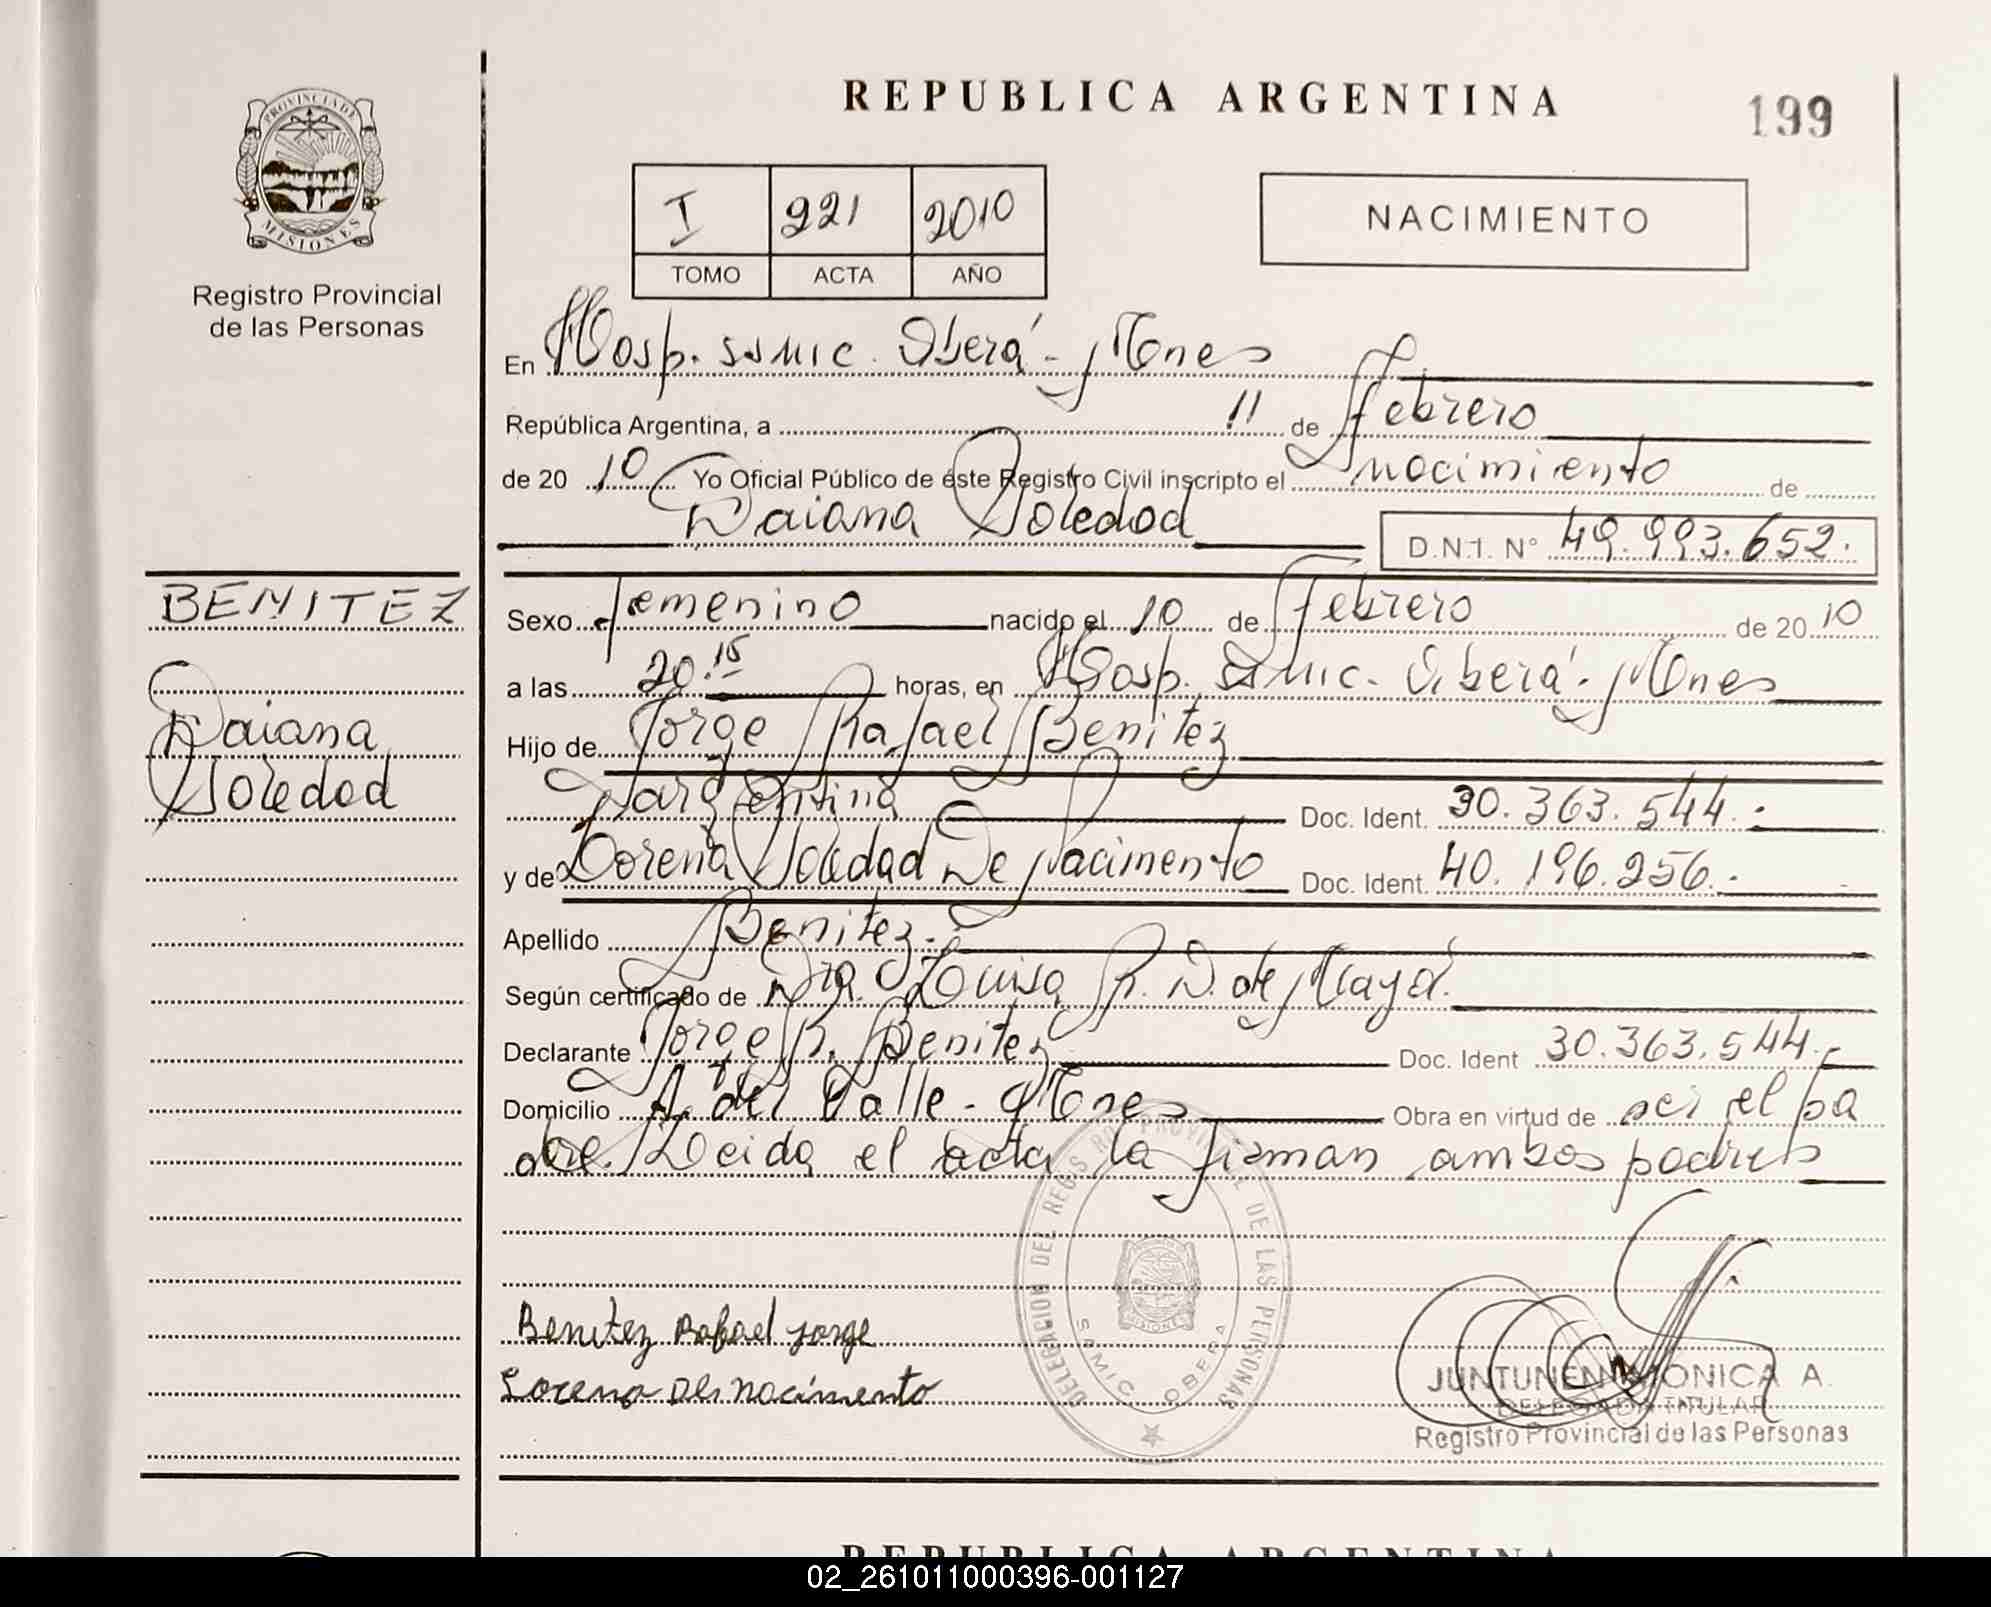 PROVINCIA DE
MISIONES
Registro Provincial
de las Personas
REPUBLICA ARGENTINA
199
I 221 2010
TOMO ACTA AÑO
NACIMIENTO
En Hosp. SAMIC. Oberá - Mnes
República Argentina, a 11 de febrero
de 20 10 Yo Oficial Público de éste Registro Civil inscripto el nacimiento de
Daiana Soledad D.N.I. N° 49.993.652.
BENITEZ
Daiana
Soledad
Sexo femenino nacido el 10 de febrero de 20 10
a las 20.15 horas, en Hosp. SAMIC. Oberá - Mnes
Hijo de Jorge Rafael Benitez
Argentina Doc. Ident. 30.363.544.-
y de Lorena Soledad De Nacimento Doc. Ident. 40.196.256.-
Apellido Benitez.-
Según certificado de Dra. Luisa R. D. de
Declarante Jorge R. Benitez Doc. Ident 30.363.544.-
Domicilio A. del Valle - Mnes Obra en virtud de ser el pa
dre. Leida el acta la firman ambos padres
DELEGACION DEL REGISTRO PROVINCIAL DE LAS PERSONAS
MISIONES
SAMIC OBERA
Benitez Rafael Jorge
Lorena De Nacimento
JUNTUNEN MONICA A.
DELEGADA TITULAR
Registro Provincial de las Personas
REPUBLICA ARGENTINA
02_261011000396-001127